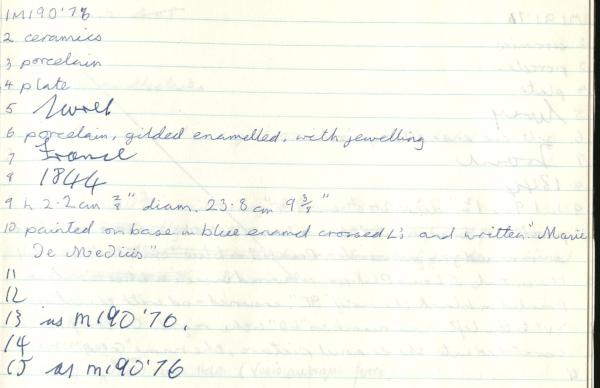 1 M190'76
2 ceramics
3 porcelain
4 plate
5
6 porcelain, gilded enamelled, with jewelling
7 France
8 1844
9 h 2.2 cm ⅞" diam. 23.8 cm 9 3/8"
10 painted on base in blue enamel crossed L's and written "Marie
De Medicis"
11
12
13 as M190'70.
14
15 as M190'76